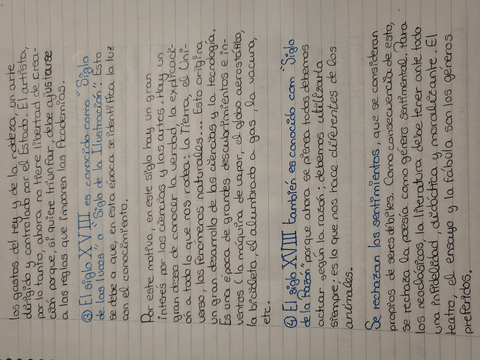 los gustos del rey y de la nobleza, un arte
dirigido y controlado por el Estado. El artista,
por lo tanto, ahora no tiene libertad de crea-
ción porque, si quiere triunfar, debe ajustarse
a las reglas que imponen las Academias.
③ El siglo XVIII es conocido como "Siglo
de las luces" o "Siglo de la Ilustración". Esto
se debe a que, en esta época se identifica la luz
con el conocimiento.
Por este motivo, en este siglo hay un gran
interés por las ciencias y las artes. Hay un
gran deseo de conocer la verdad, la explicaci-
ón a todo lo que nos rodea: la Tierra, el Uni-
verso, los fenómenos naturales... Esto origina
un gran desarrollo de las ciencias y la tecnología.
Es una época de grandes descubrimientos e in-
ventos (la máquina de vapor, el globo aerostático,
la bicicleta, el alumbrado a gas, la vacuna,
etc.
④ El siglo XVIII también es conocido com "Siglo
de la Razón" porque ahora se piensa todos debemos
actuar según la razón; debemos utilizarla
siempre; es lo que nos hace diferentes de los
animales.
Se rechazan los sentimientos, que se consideran
propios de seres débiles. Como consecuencia de esto,
se rechaza la poesía como género sentimental. Para
los neoclásicos, la literatura debe tener ante todo
una utilidad, didáctica y moralizante. El
teatro, el ensayo y la fábula son los géneros
preferidos.